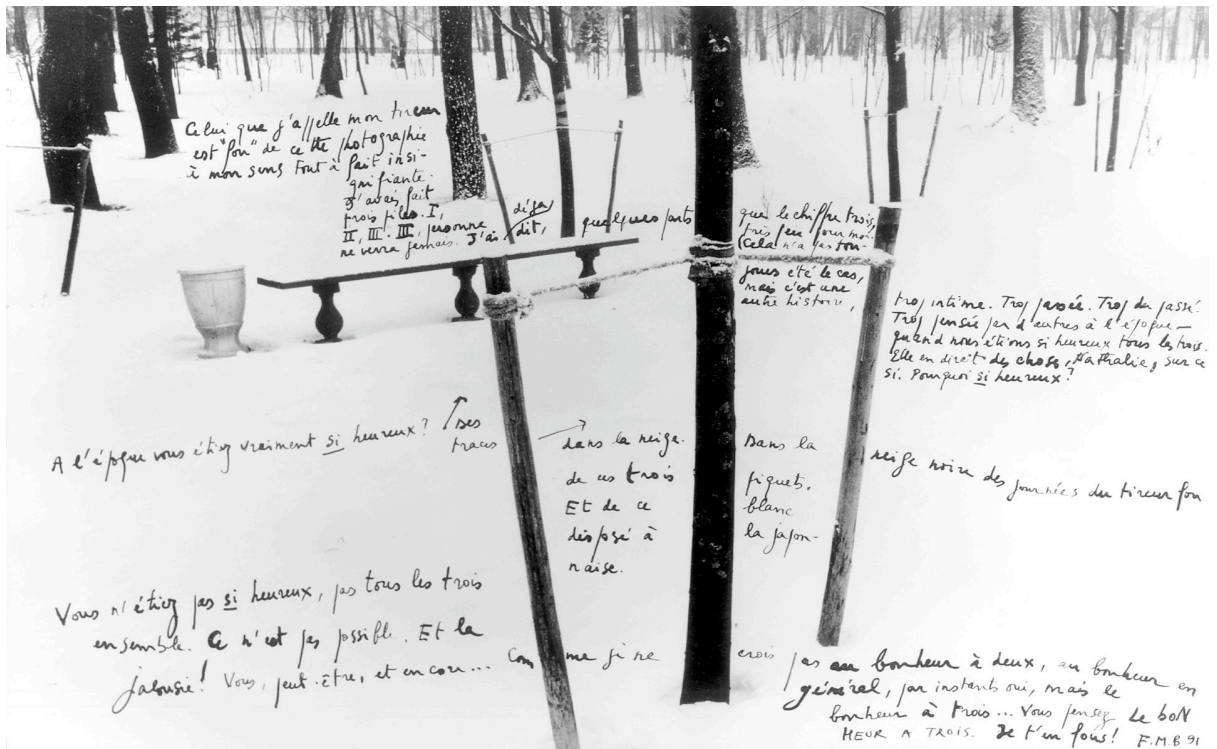 Celui que j'appelle mon tireur
est "fou" de cette photographie
à mon sens tout à fait insi-
gnifiante.
J'avais fait
trois piles. I,
II, III. III, personne
ne verra jamais. J'ai déjà dit, quelques parts
que le chiffre trois,
très peu pour moi.
(Cela n'a pas tou-
jours été le cas,
mais c'est une
autre histoire,
trop intime. Trop passée. Trop du passé.
Trop pensée par d'autres à l'époque —
quand nous étions si heureux tous les trois.
Elle en dirait des choses, Nathalie, sur ce
si. Pourquoi si heureux ?
A l'époque vous étiez vraiment si heureux ?
Des
traces
dans la neige. Dans la neige noire des journées du tireur fou
de ces trois piquets.
Et de ce blanc
disposé à la japon-
naise.
Vous n'étiez pas si heureux, pas tous les trois
ensemble. Ce n'est pas possible. Et la
jalousie ! Vous, peut-être, et encore... Comme je ne crois pas au bonheur à deux, au bonheur en
général, par instants oui, mais le
bonheur à trois... Vous pensez LE BON
HEUR A TROIS. Je t'en fous ! F.M.B 91